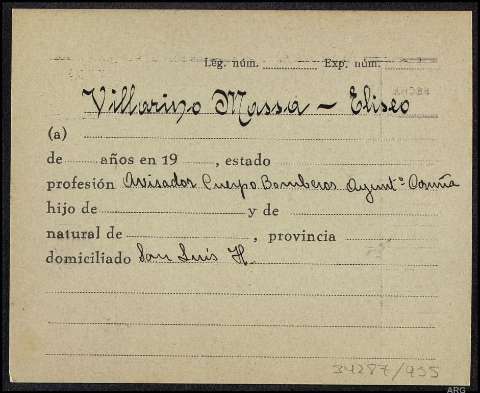 Leg. núm. Exp. núm.
Villarino Massa - Eliseo
(a)
de años en 19 , estado
profesión Avisador Cuerpo Bomberos Ayuntº Coruña
hijo de y de
natural de , provincia
domiciliado San Luis H.
34287/935
ARG